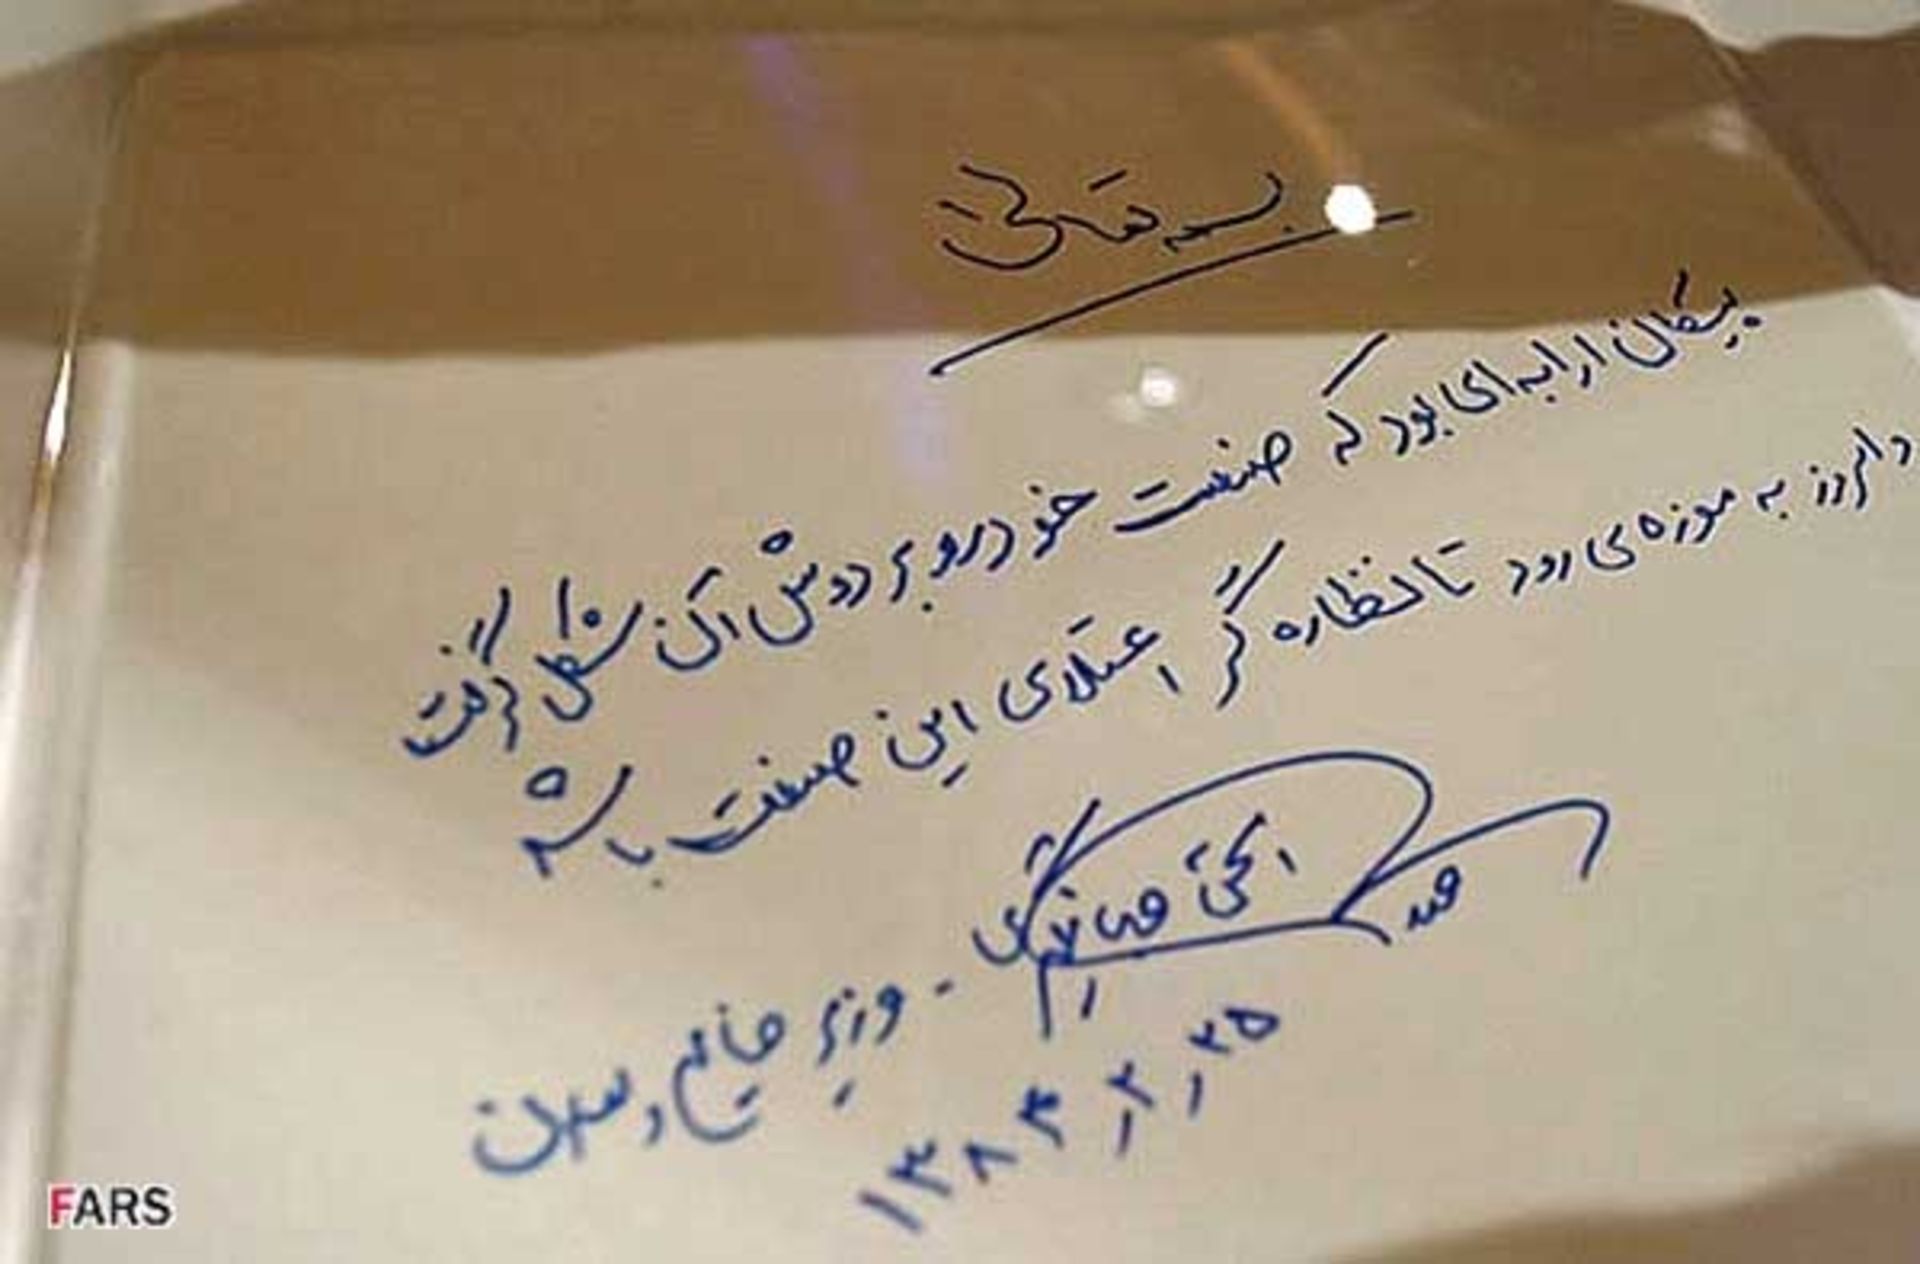 بسمه تعالی
پیکان ارابه ای بود که صنعت خودرو بر دوش آن شکل گرفت
و امروز به موزه می رود تا نظاره گر اعتلای این صنعت باشد
اسحق جهانگیری - وزیر صنایع و معادن
۱۳۸۴/۲/۲۵
FARS